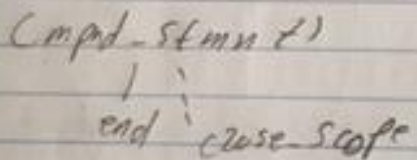 cmpnd_stmnt()
end close_scope